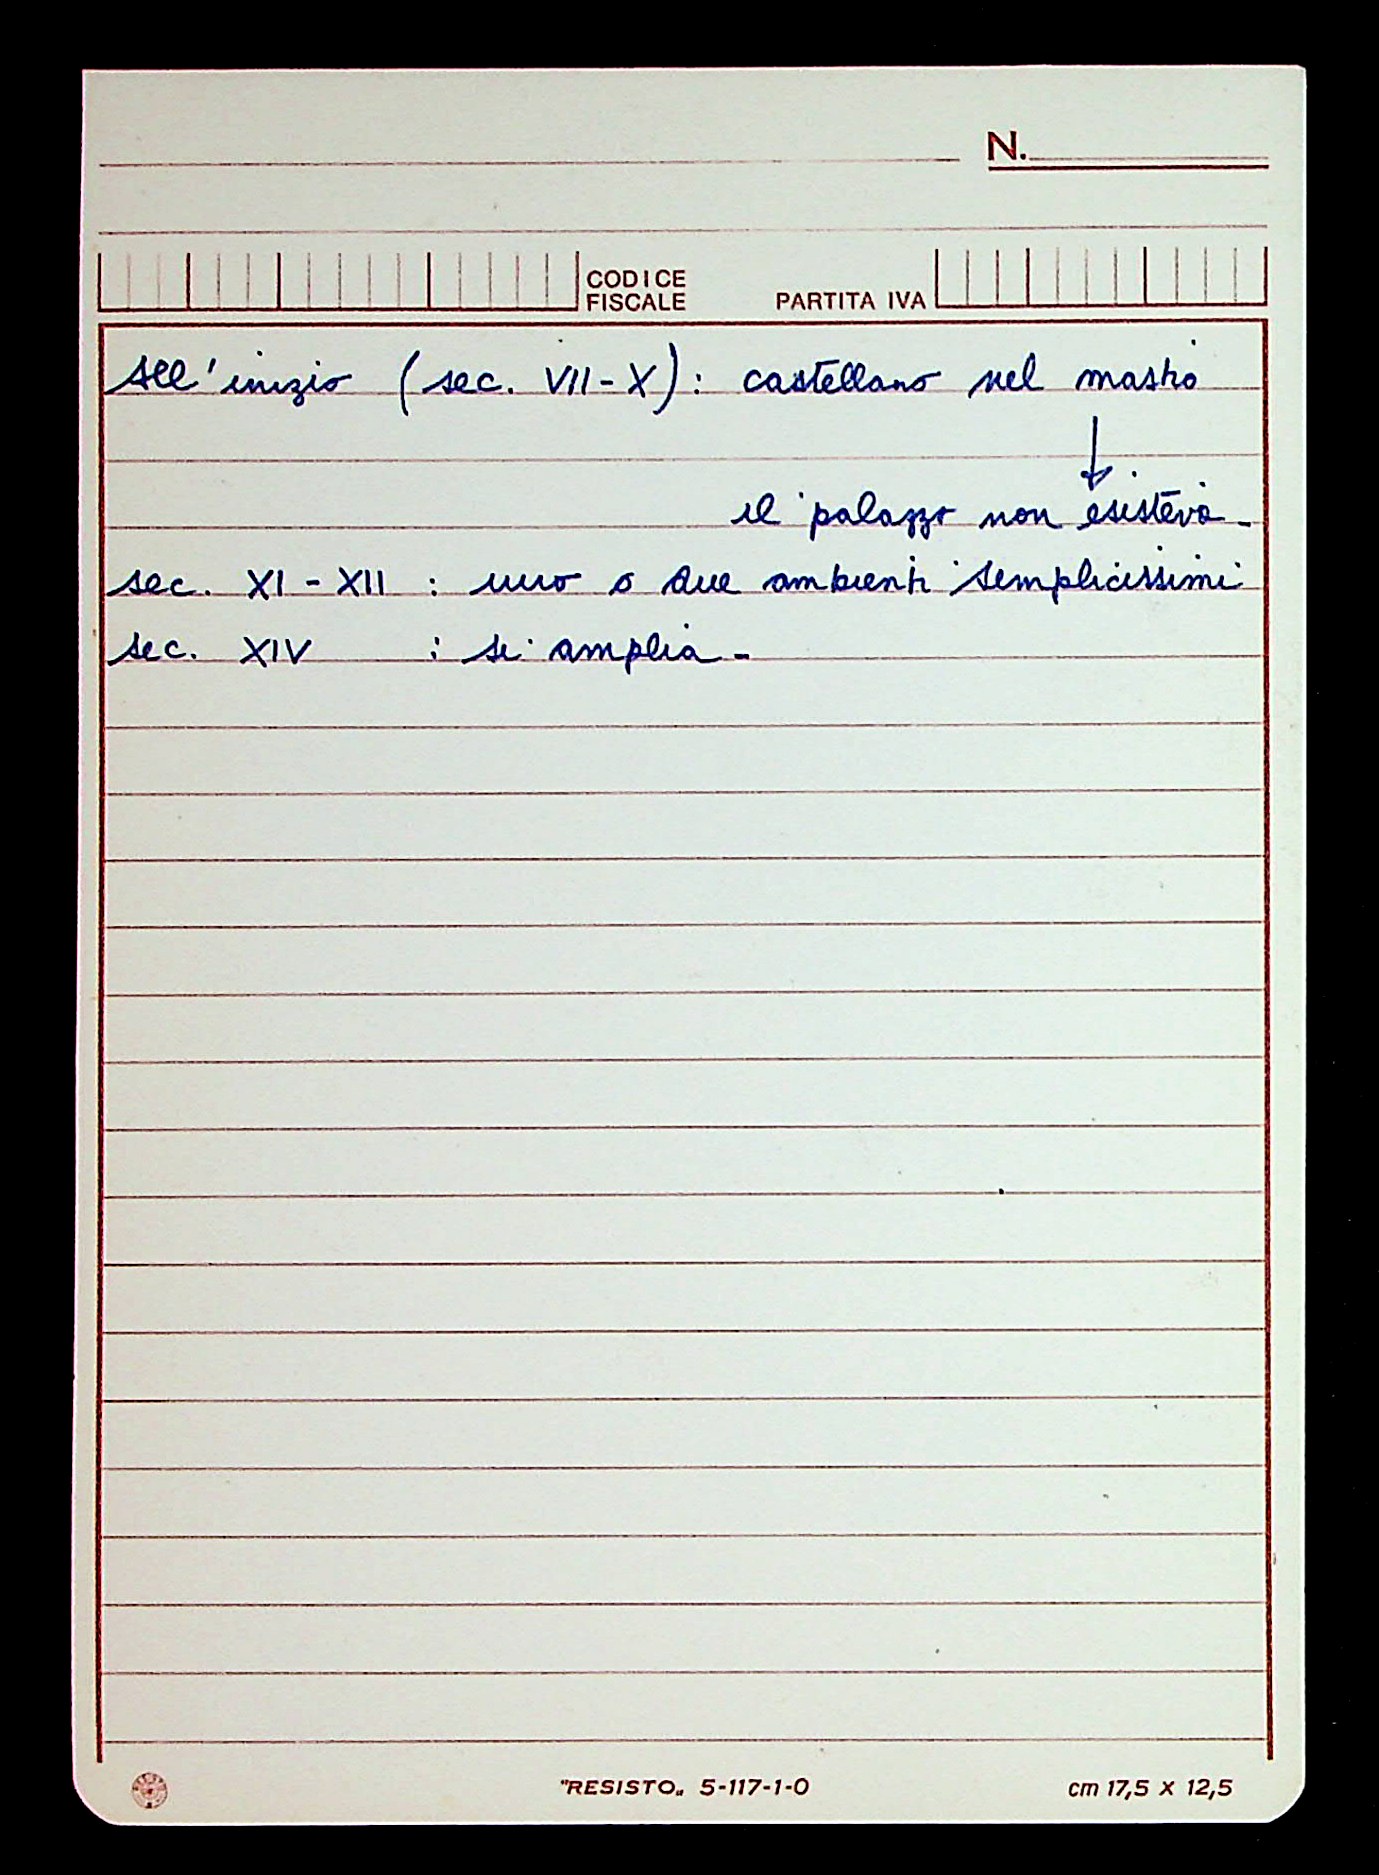 N.
CODICE
FISCALE
PARTITA IVA
All'inizio (sec. VII-X): castellano nel mastio
↓
il palazzo non esisteva -
sec. XI - XII : uno o due ambienti semplicissimi
sec. XIV : si amplia -
"RESISTO„ 5-117-1-0
cm 17,5 x 12,5